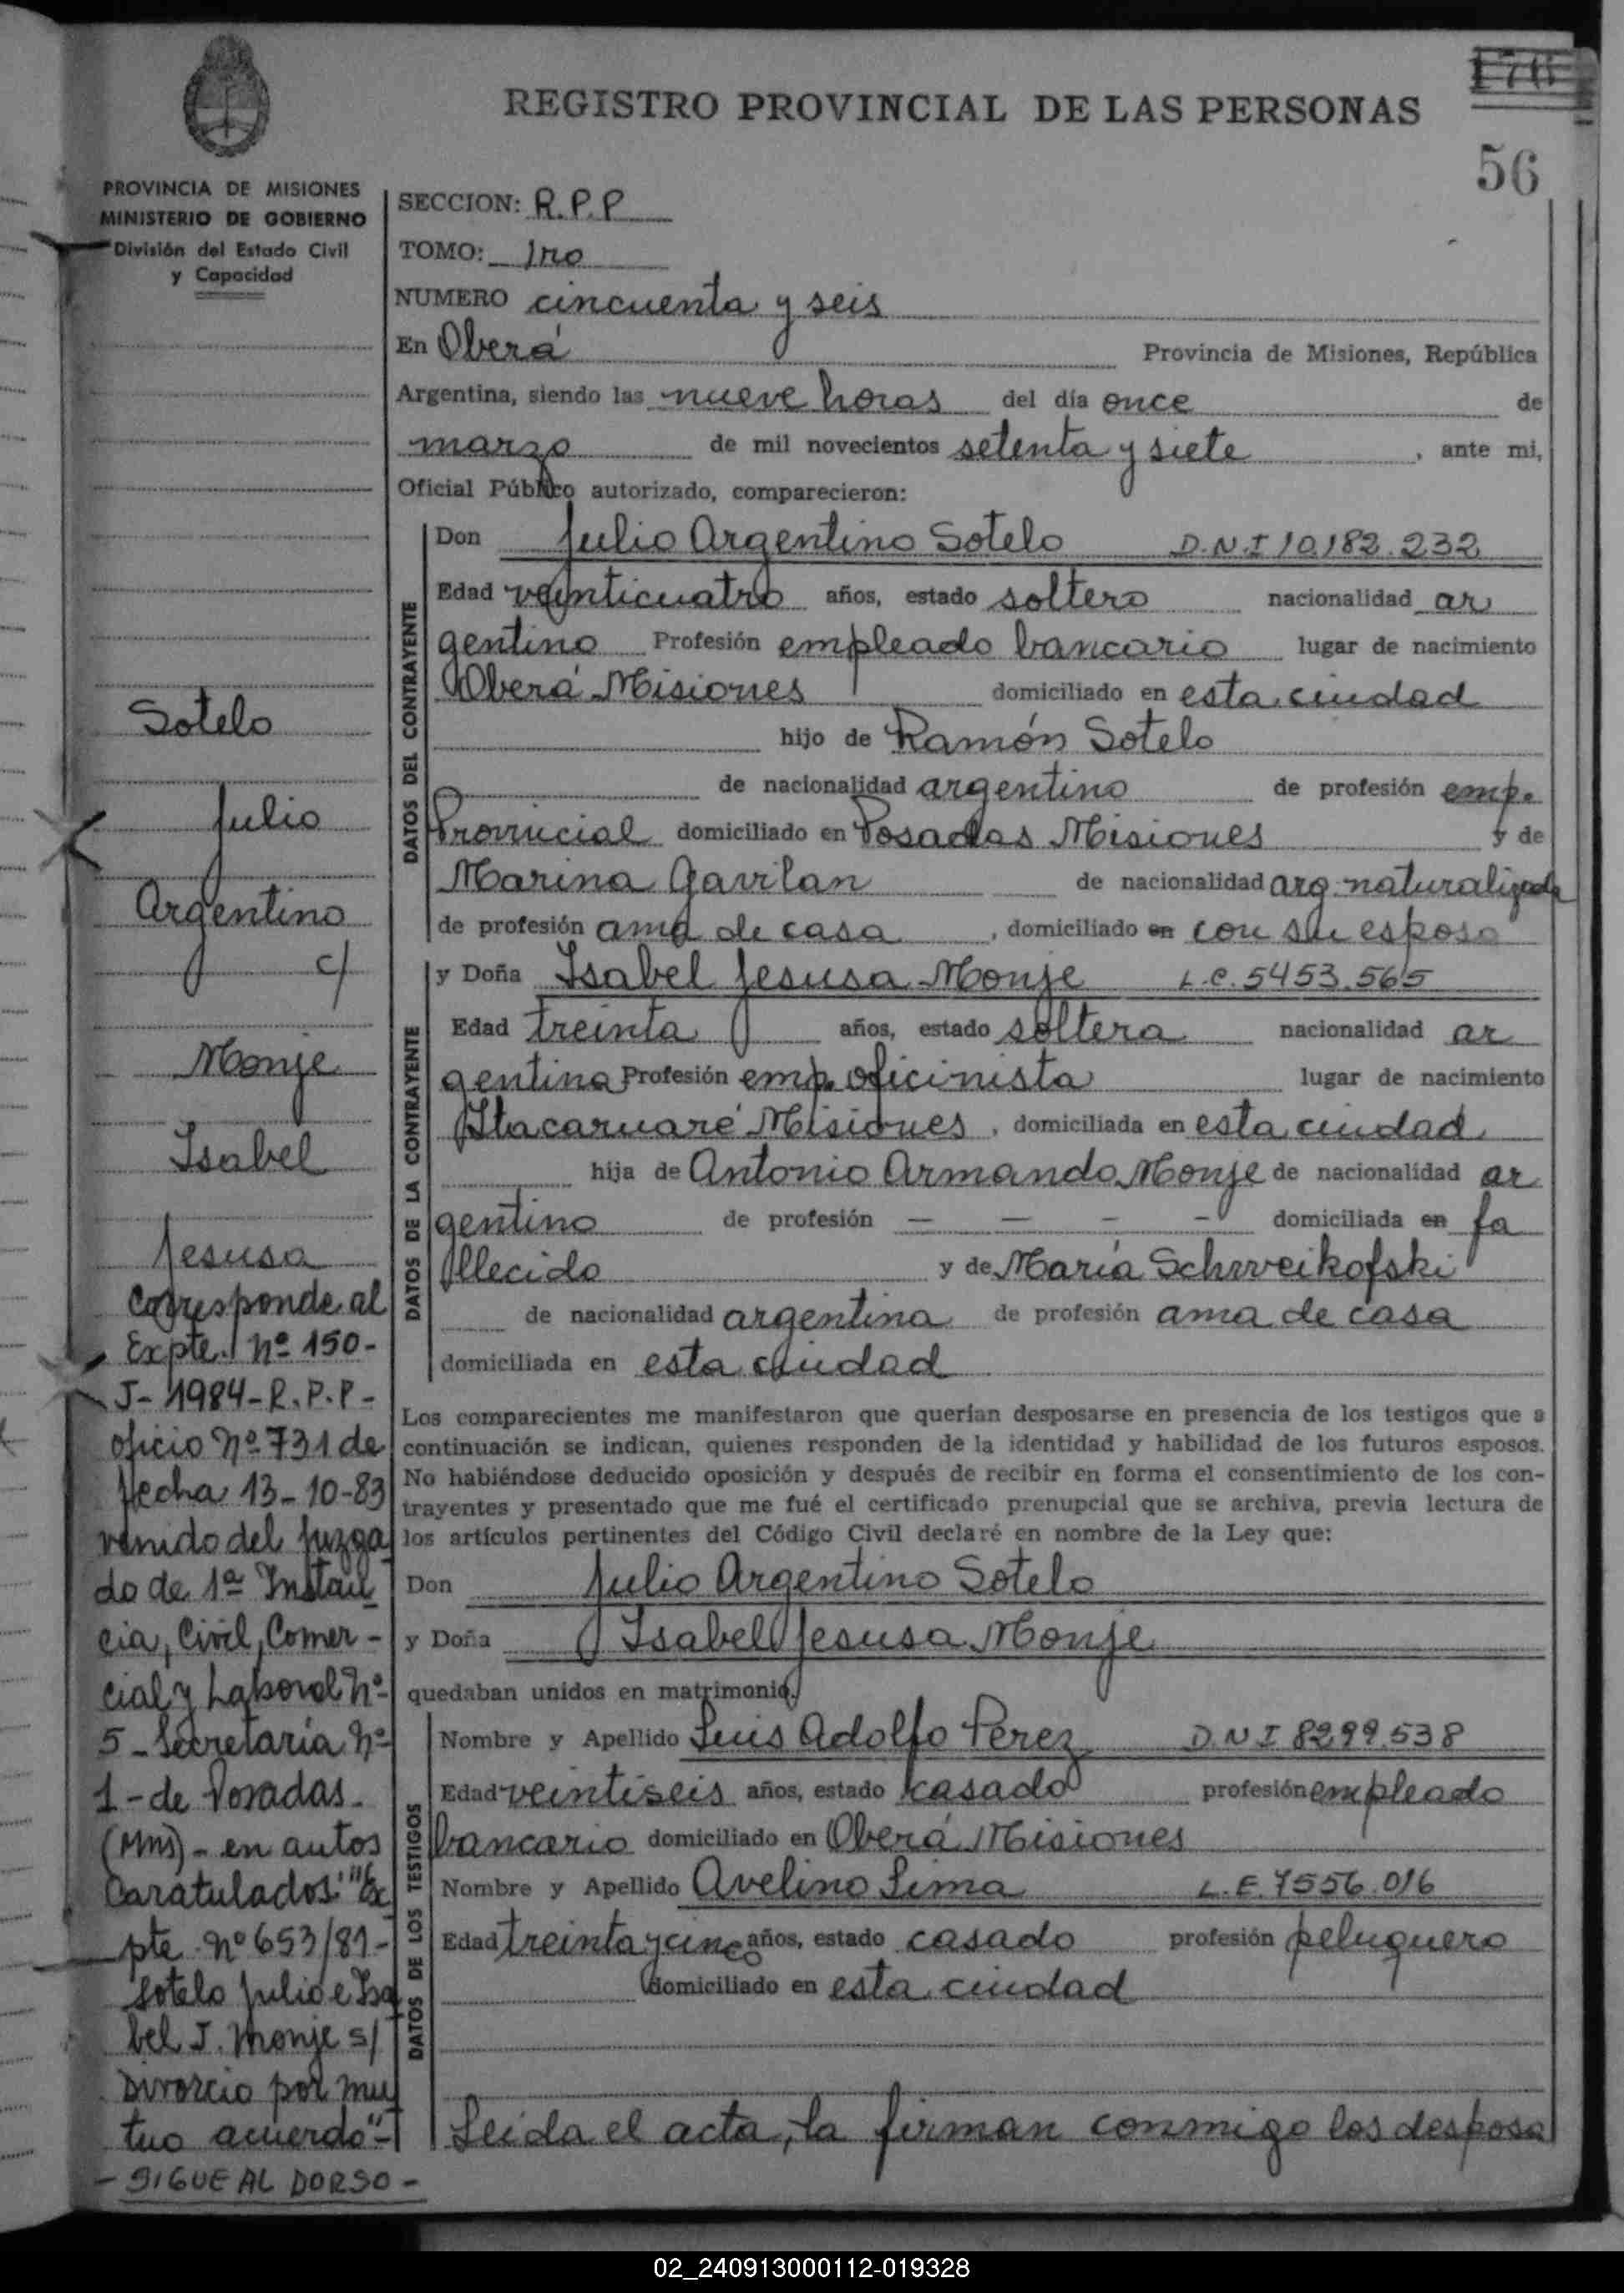 REGISTRO PROVINCIAL DE LAS PERSONAS
56
PROVINCIA DE MISIONES
MINISTERIO DE GOBIERNO
División del Estado Civil
y Capacidad
SECCION: R.P.P
TOMO: 1ro
NUMERO cincuenta y seis
En Oberá Provincia de Misiones, República
Argentina, siendo las nueve horas del día once de
marzo de mil novecientos setenta y siete, ante mi,
Oficial Público autorizado, comparecieron:
DATOS DEL CONTRAYENTE
Don Julio Argentino Sotelo D.N.I 10.182.232
Edad veinticuatro años, estado soltero nacionalidad ar
gentino Profesión empleado bancario lugar de nacimiento
Oberá Misiones domiciliado en esta ciudad
hijo de Ramón Sotelo
de nacionalidad argentino de profesión emp.
Provincial domiciliado en Posadas Misiones y de
Marina Gavilan de nacionalidad arg. naturalizada
de profesión ama de casa, domiciliado en con su esposo
DATOS DE LA CONTRAYENTE
y Doña Isabel Jesusa Monje L.C. 5453.565
Edad treinta años, estado soltera nacionalidad ar
gentina Profesión emp. oficinista lugar de nacimiento
Itacaruaré Misiones, domiciliada en esta ciudad
hija de Antonio Armando Monje de nacionalidad ar
gentino de profesión — — — — domiciliada en fa
llecido y de María Schweikofski
de nacionalidad argentina de profesión ama de casa
domiciliada en esta ciudad
Los comparecientes me manifestaron que querían desposarse en presencia de los testigos que a
continuación se indican, quienes responden de la identidad y habilidad de los futuros esposos.
No habiéndose deducido oposición y después de recibir en forma el consentimiento de los con-
trayentes y presentado que me fué el certificado prenupcial que se archiva, previa lectura de
los artículos pertinentes del Código Civil declaré en nombre de la Ley que:
Don Julio Argentino Sotelo
y Doña Isabel Jesusa Monje
quedaban unidos en matrimonio.
DATOS DE LOS TESTIGOS
Nombre y Apellido Luis Adolfo Perez D.N.I 8299.538
Edad veintiseis años, estado casado profesión empleado
bancario domiciliado en Oberá Misiones
Nombre y Apellido Avelino Lima L.E. 7556.016
Edad treinta y cinco años, estado casado profesión peluquero
domiciliado en esta ciudad
Leida el acta, la firman conmigo los desposa
Sotelo
Julio
Argentino
c/
Monje
Isabel
Jesusa
Corresponde al
Expte. Nº 150-
J- 1984-R.P.P-
oficio Nº 731 de
fecha 13-10-83
venido del Juzga
do de 1ª Instan
cia, Civil, Comer-
cial y Laboral Nº
5- Secretaría Nº
1- de Posadas-
(Mns)- en autos
Caratulados: "Ex
pte. Nº 653/81-
Sotelo Julio e Isa
bel J. Monje s/
Divorcio por mu
tuo acuerdo"-
- SIGUE AL DORSO -
02_240913000112-019328